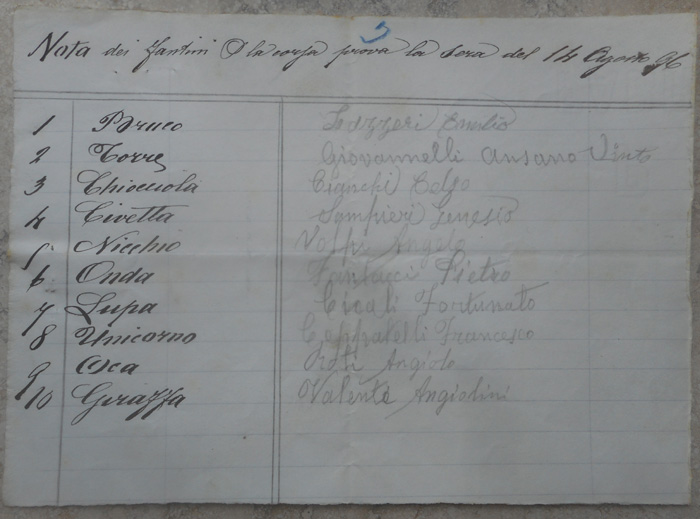 3
Nota dei fantini P la corsa prova la sera del 14 Agosto 96
1 Bruco Fazzeri Emilio
2 Torre Giovannelli Ansano Vinto
3 Chiocciola Cianchi Celso
4 Civetta Sampieri Genesio
5 Nicchio Volpi Angelo
6 Onda Fantacci Pietro
7 Lupa Cicali Fortunato
8 Unicorno Coppiatelli Francesco
9 Oca Poli Angiolo
10 Geraffa Valente Angiolini